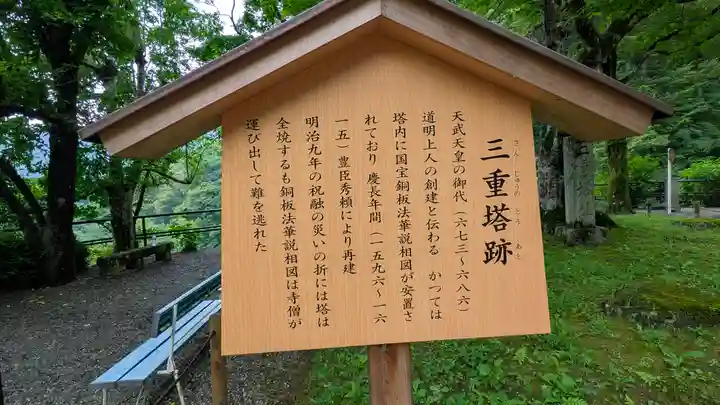 三重塔跡
さん じゅうの とう あと
天武天皇の御代（六七三〜六八六）
道明上人の創建と伝わる かつては
塔内に国宝銅板法華説相図が安置さ
れており 慶長年間（一五九六〜一六
一五）豊臣秀頼により再建
明治九年の祝融の災いの折には塔は
全焼するも銅板法華説相図は寺僧が
運び出して難を逃れた